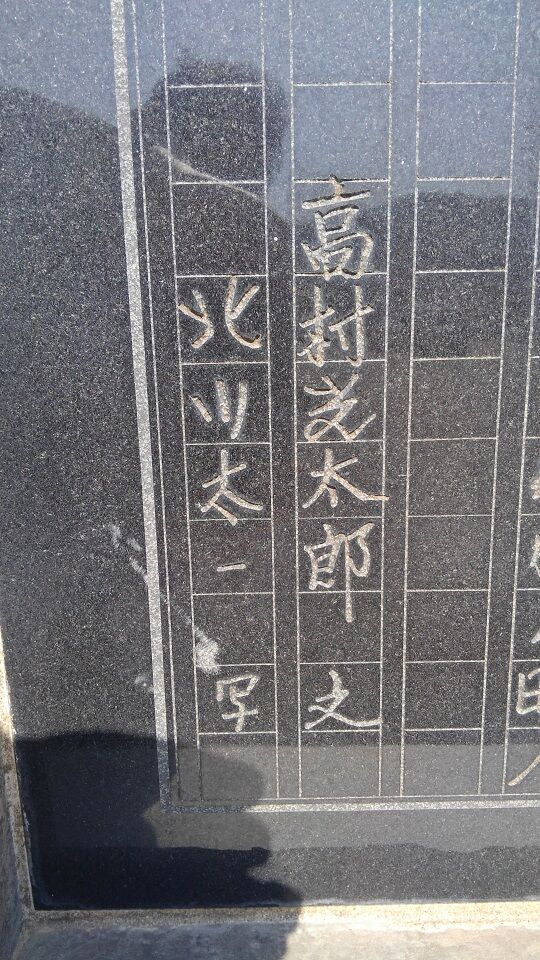 高村光太郎 文
北川太一 写